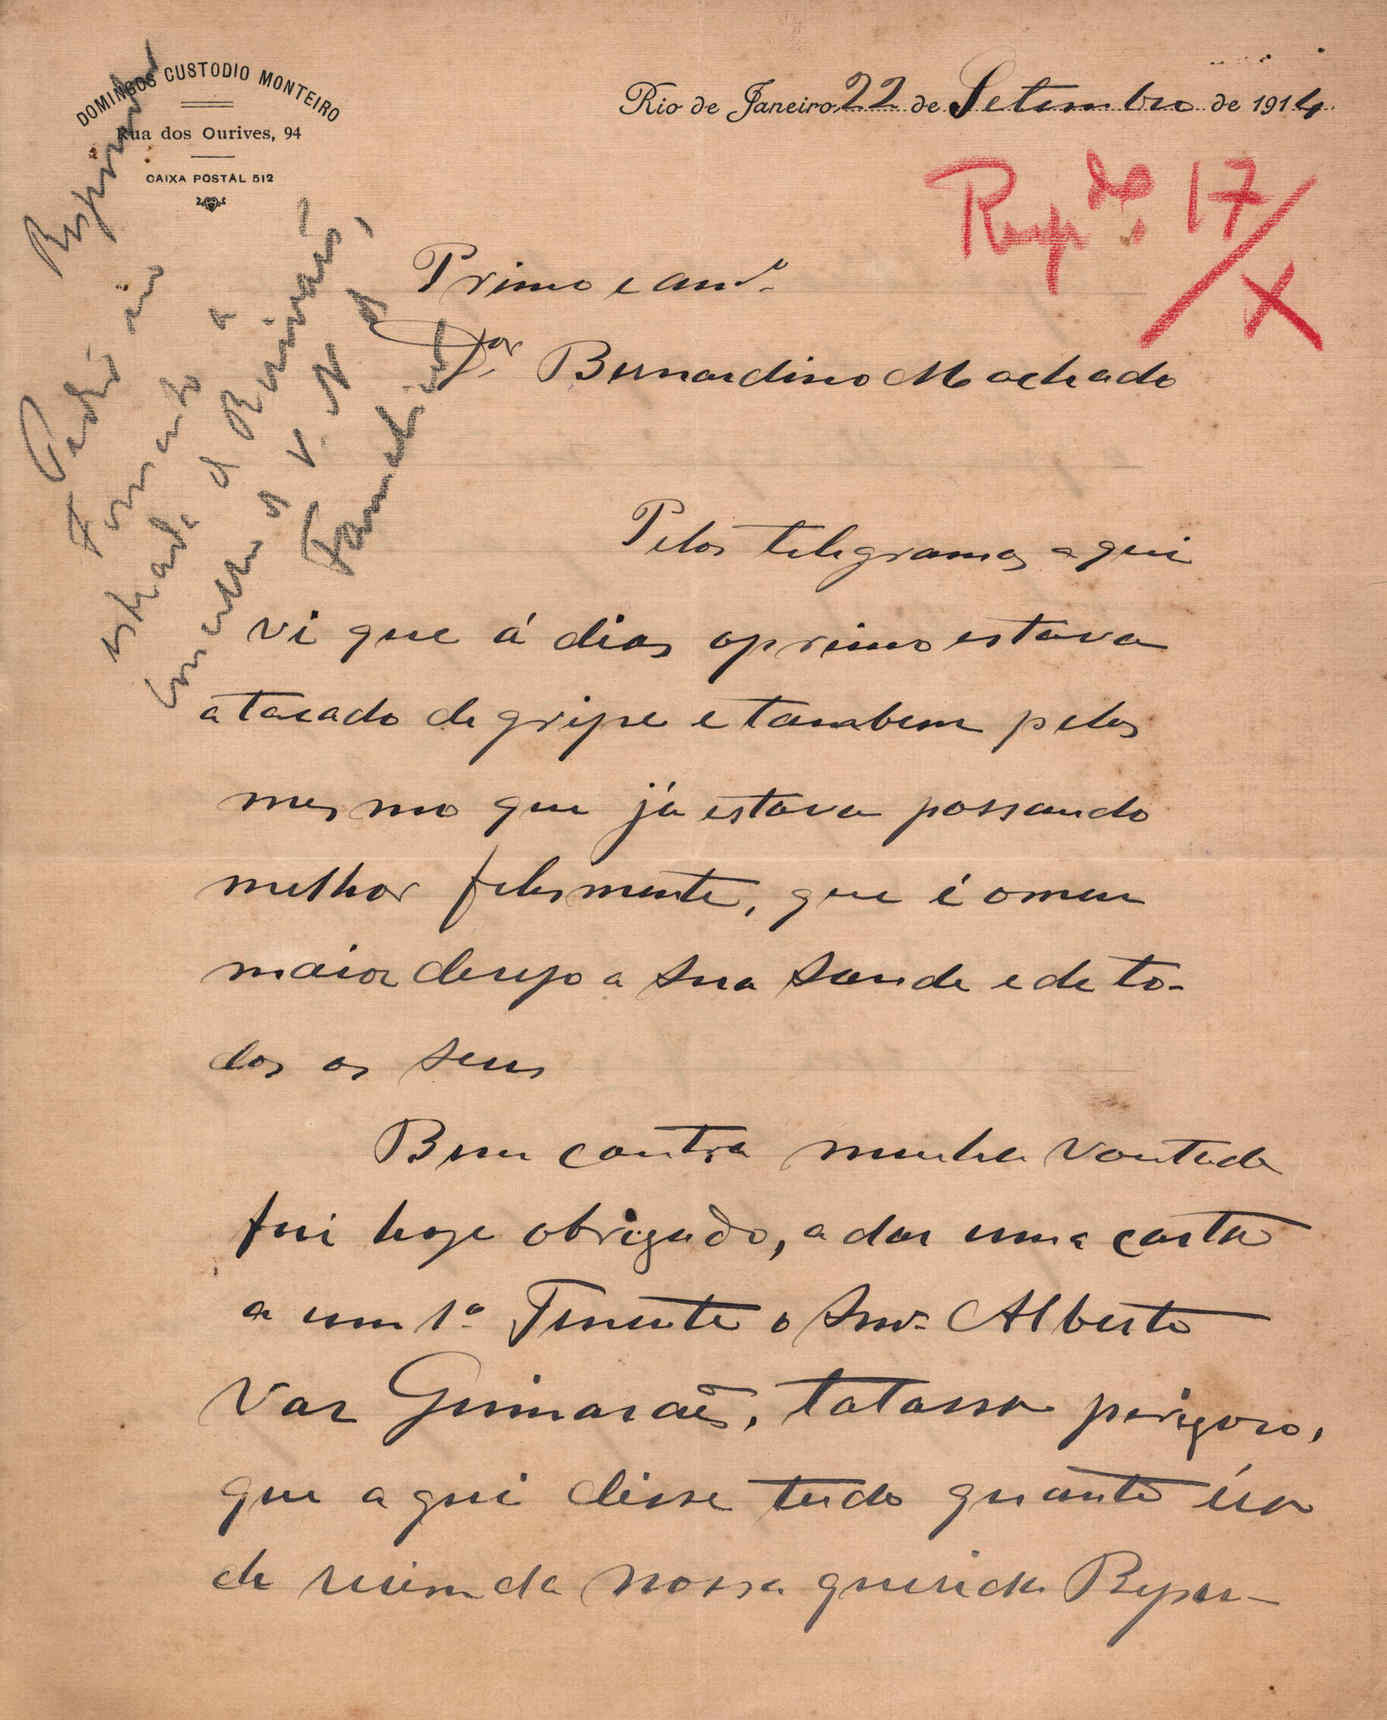 DOMINGOS CUSTODIO MONTEIRO
Rua dos Ourives, 94
CAIXA POSTAL 512
Rio de Janeiro 22 de Setembro de 1914
Respdo 17/X
Responder
Pedi no
Fomento a
estrada de
de V. N. de
Famalicão
Primo e amo.
Dor Bernardino Machado
Pelos telegramas aqui
vi que á dias o primo estava
atacado de gripe e tambem pelos
mesmo que já estava passando
melhor felismente, que é o meu
maior desejo a sua saude e de to-
dos os seus
Bem contra minha vontade
fui hoje obrigado, a dar uma carta
a um 1º Tenente o Snr. Alberto
Vaz Guimarães, talassa perigoso,
que aqui disse tudo quanto éra
de ruim da nossa querida Repu-